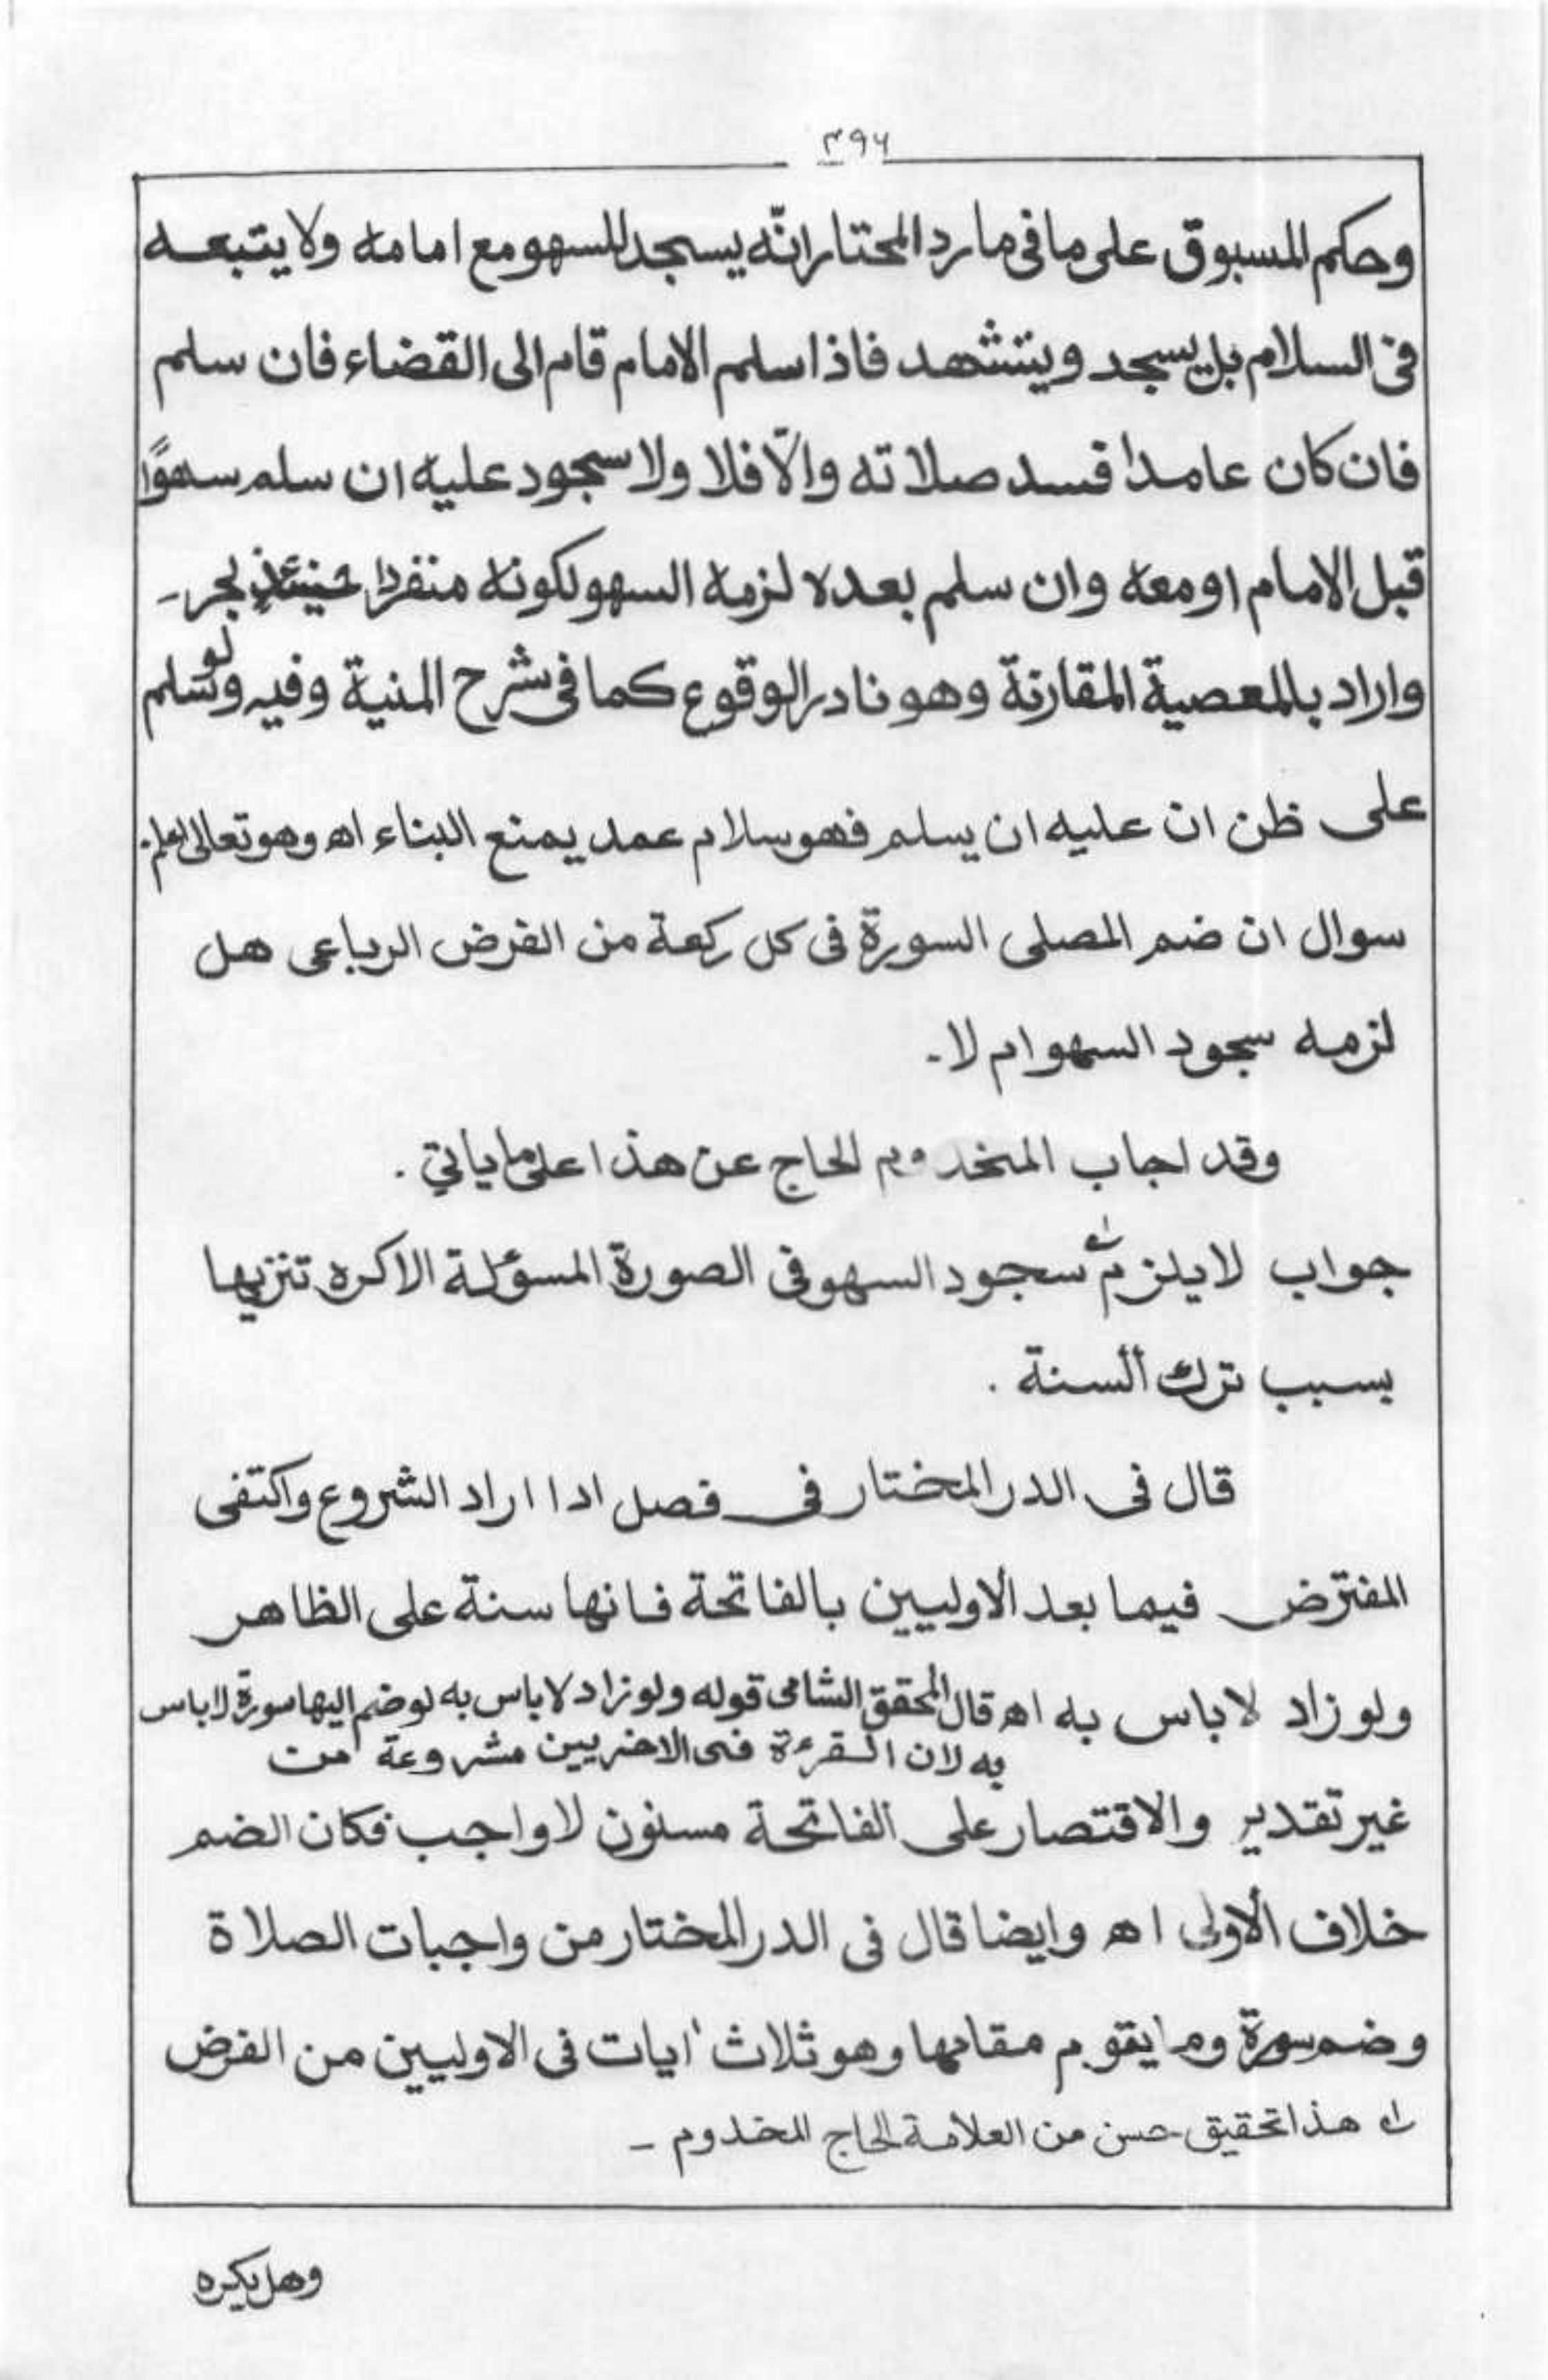 ۳۹۶
وحكم المسبوق على ما فى ما رد المحتار انّه يسجد للسهو مع امامه ولا يتبعه
فى السلام بل يسجد ويتشهد فاذا سلم الامام قام الى القضاء فان سلم
فان كان عامدا فسد صلاته والّا فلا ولا سجود عليه ان سلم سهوًا
قبل الامام او معه وان سلم بعده لزمه السهو لكونه منفردا حينئذٍ بحر۔
واراد بالمعصية المقارنة وهو نادر الوقوع كما فى شرح المنية وفيه ولو سلم
على ظن ان عليه ان يسلم فهو سلام عمد يمنع البناء اه وهو تعالى اعلم.
سوال ان ضم المصلى السورة فى كل ركعة من الفرض الرباعى هل
لزمه سجود السهو ام لا۔
وقد اجاب المخدوم الحاج عن هذا على ما ياتي .
جواب لا يلزم ؂۱ سجود السهو فى الصورة المسؤلة الا كره تنزيها
بسبب ترك السنة .
قال فى الدر المختار فى فصل اذا اراد الشروع واكتفى
المفترض فيما بعد الاوليين بالفاتحة فانها سنة على الظاهر
ولو زاد لا باس به اه قال المحقق الشامى قوله ولو زاد لا باس به لو ضم اليها سورة لا باس
به لان القرءة فى الاخريين مشروعة من
غير تقدير والاقتصار على الفاتحة مسنون لا واجب فكان الضم
خلاف الأولى اه وايضا قال فى الدر المختار من واجبات الصلاة
وضم سورة وما يقوم مقامها وهو ثلاث ايات فى الاوليين من الفرض
؂۱ هذا تحقيق حسن من العلامة الحاج المخدوم ۔
وهل يكره